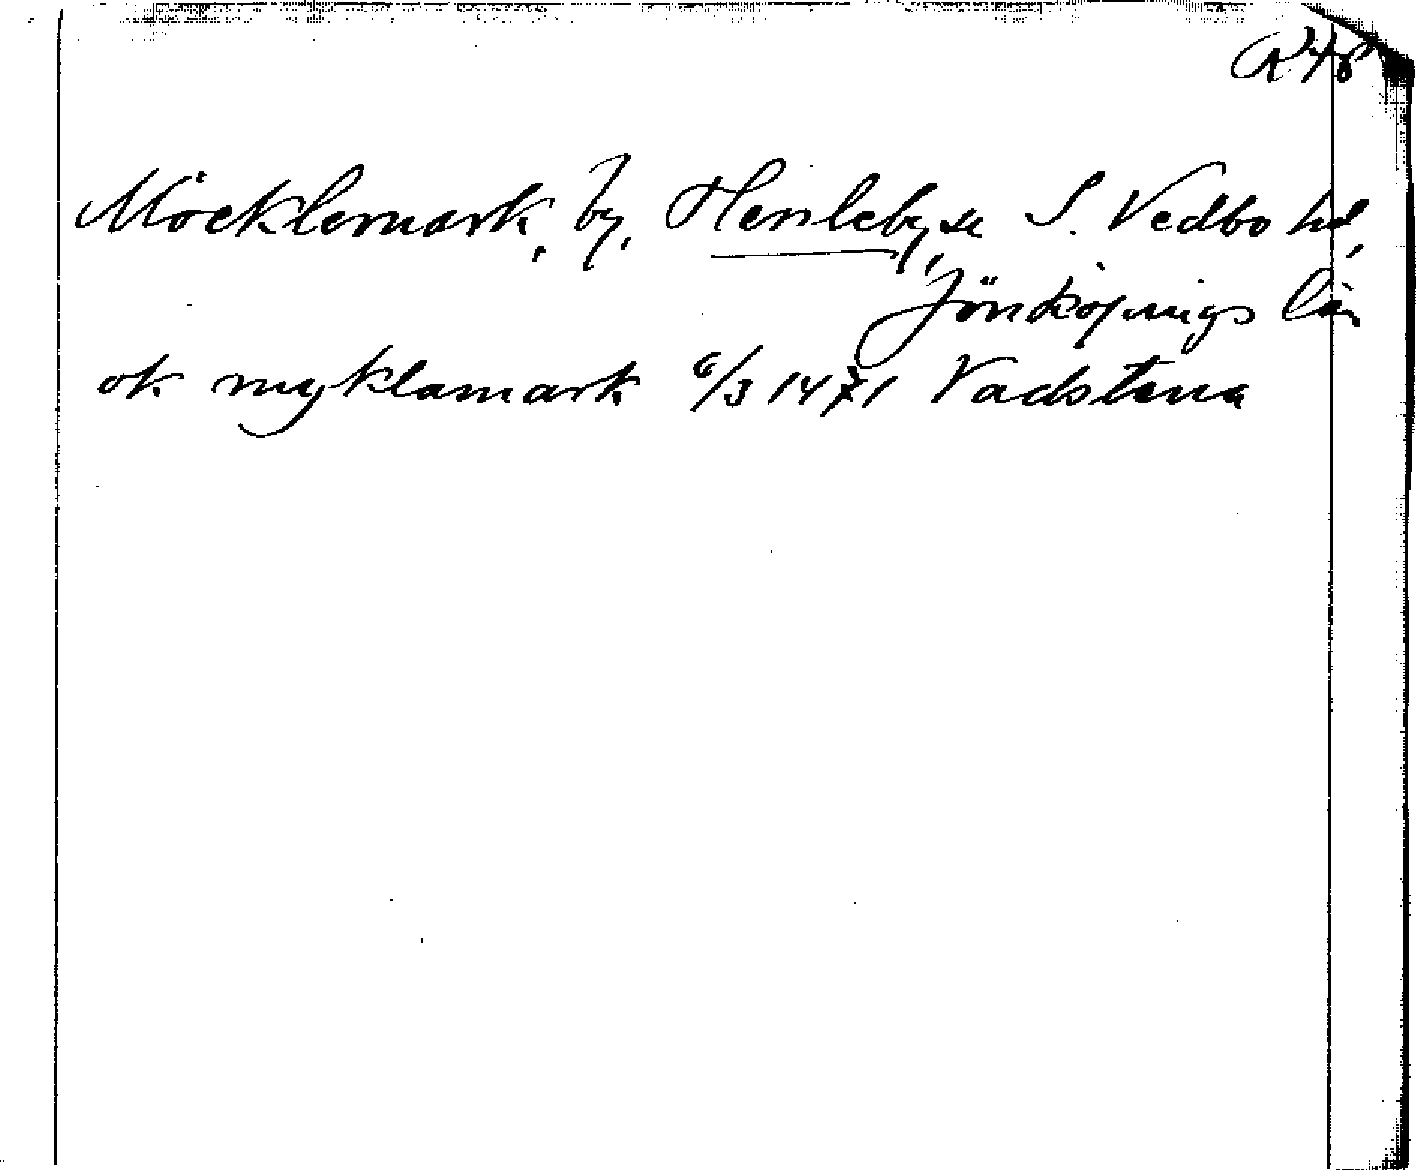 Möcklemark, by, Hersleby, sn S. Vedbo hd,
Jönköpings län
ok myklamark 6/3 1471 Vadstena